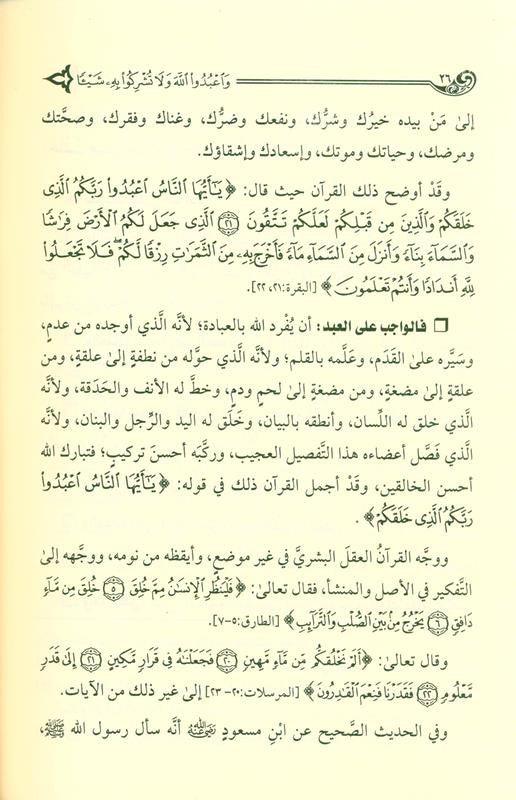 ٢٦ وَاعْبُدُوا اللَّهَ وَلَا تُشْرِكُوا بِهِ شَيْئًا
إلىٰ مَنْ بيده خيرُك وشرُّك، ونفعك وضرُّك، وغناك وفقرك، وصحَّتك
ومرضك، وحياتك وموتك، وإسعادك وإشقاؤك.
وقَدْ أوضح ذلك القرآن حيث قال: ﴿ يَٰٓأَيُّهَا ٱلنَّاسُ ٱعْبُدُوا۟ رَبَّكُمُ ٱلَّذِى
خَلَقَكُمْ وَٱلَّذِينَ مِن قَبْلِكُمْ لَعَلَّكُمْ تَتَّقُونَ ۝٢١ ٱلَّذِى جَعَلَ لَكُمُ ٱلْأَرْضَ فِرَٰشًا
وَٱلسَّمَآءَ بِنَآءً وَأَنزَلَ مِنَ ٱلسَّمَآءِ مَآءً فَأَخْرَجَ بِهِۦ مِنَ ٱلثَّمَرَٰتِ رِزْقًا لَّكُمْ ۖ فَلَا تَجْعَلُوا۟
لِلَّهِ أَندَادًا وَأَنتُمْ تَعْلَمُونَ ﴾ [البقرة:٢١، ٢٢].
❒ فالواجب على العبد: أن يُفْرد الله بالعبادة؛ لأنَّه الَّذي أوجده من عدمٍ،
وسيَّره علىٰ القدَم، وعلَّمه بالقلم؛ ولأنَّه الَّذي حوَّله من نطفةٍ إلىٰ علقةٍ، ومن
علقةٍ إلىٰ مضغةٍ، ومن مضغةٍ إلىٰ لحمٍ ودمٍ، وخطَّ له الأنف والحَدَقة، ولأنَّه
الَّذي خلق له اللِّسان، وأنطقه بالبيان، وخَلَق له اليد والرِّجل والبنان، ولأنَّه
الَّذي فَصَّل أعضاءه هذا التَّفصيل العجيب، وركَّبه أحسنَ تركيبٍ؛ فتبارك الله
أحسن الخالقين، وقَدْ أجمل القرآن ذلك في قوله: ﴿ يَٰٓأَيُّهَا ٱلنَّاسُ ٱعْبُدُوا۟
رَبَّكُمُ ٱلَّذِى خَلَقَكُمْ ﴾.
ووجَّه القرآنُ العقلَ البشريَّ في غير موضعٍ، وأيقظه من نومه، ووجَّهه إلىٰ
التَّفكير في الأصل والمنشأ، فقال تعالىٰ: ﴿ فَلْيَنظُرِ ٱلْإِنسَٰنُ مِمَّ خُلِقَ ۝٥ خُلِقَ مِن مَّآءٍ
دَافِقٍ ۝٦ يَخْرُجُ مِنۢ بَيْنِ ٱلصُّلْبِ وَٱلتَّرَآئِبِ ﴾ [الطارق:٥-٧].
وقال تعالىٰ: ﴿ أَلَمْ نَخْلُقكُّم مِّن مَّآءٍ مَّهِينٍ ۝٢٠ فَجَعَلْنَٰهُ فِى قَرَارٍ مَّكِينٍ ۝٢١ إِلَىٰ قَدَرٍ
مَّعْلُومٍ ۝٢٢ فَقَدَرْنَا فَنِعْمَ ٱلْقَٰدِرُونَ ﴾ [المرسلات:٢٠-٢٣] إلىٰ غير ذلك من الآيات.
وفي الحديث الصَّحيح عن ابْنِ مسعودٍ رضي الله عنه أنَّه سأل رسول الله ﷺ،